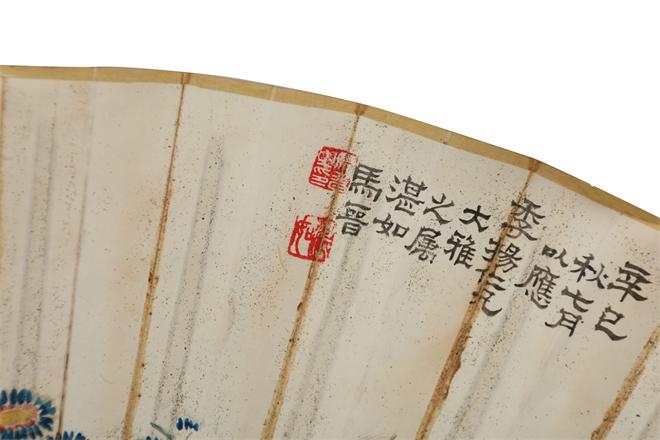 辛巳
秋七月
以應
季揚仁兄
大雅
之屬
湛如
馬晉